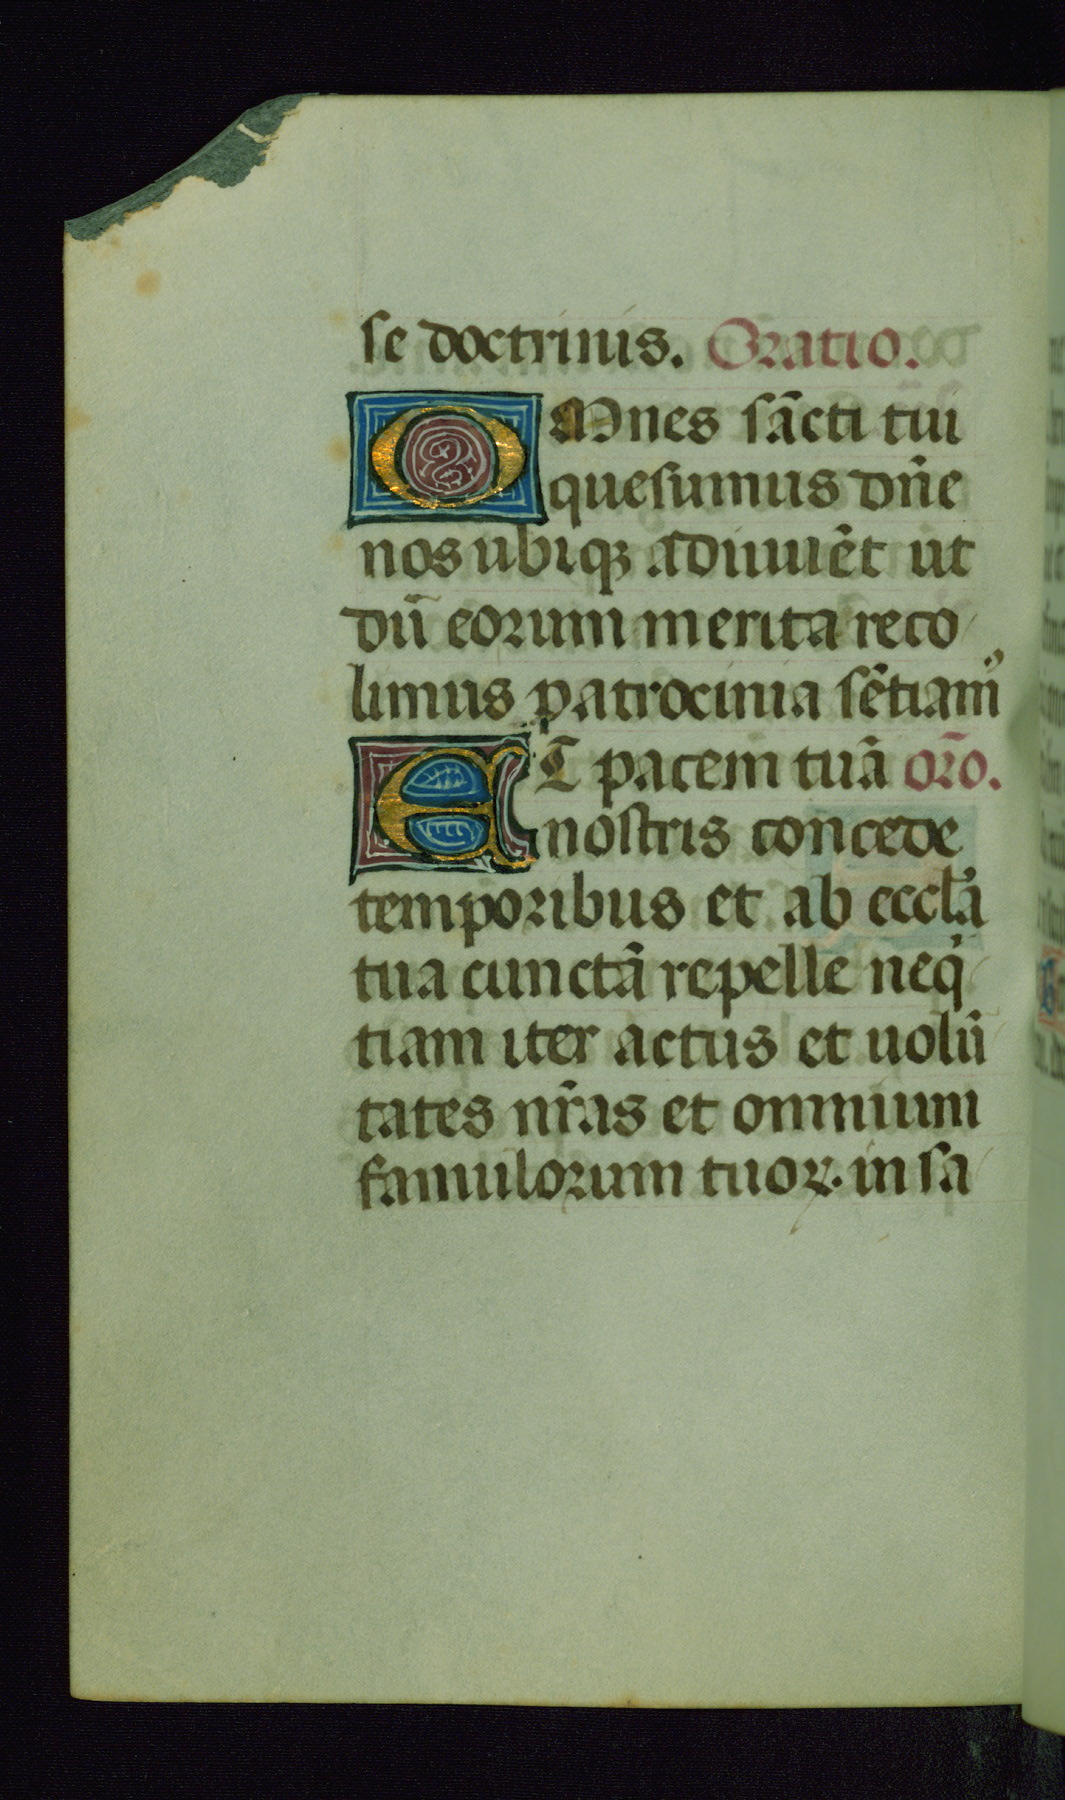 se doctrinis. Oratio.
OMnes sācti tui
quesumus dn̄e
nos ubiqꝫ adiuuēt ut
dū eorum merita reco
limus patrocinia sētiamꝰ
ET pacem tuā or̄o.
nostris concede
temporibus et ab eccl̄a
tua cunctā repelle neqͥ
tiam iter actus et uolū
tates nr̄as et omnium
famulorum tuoꝝ. in sa